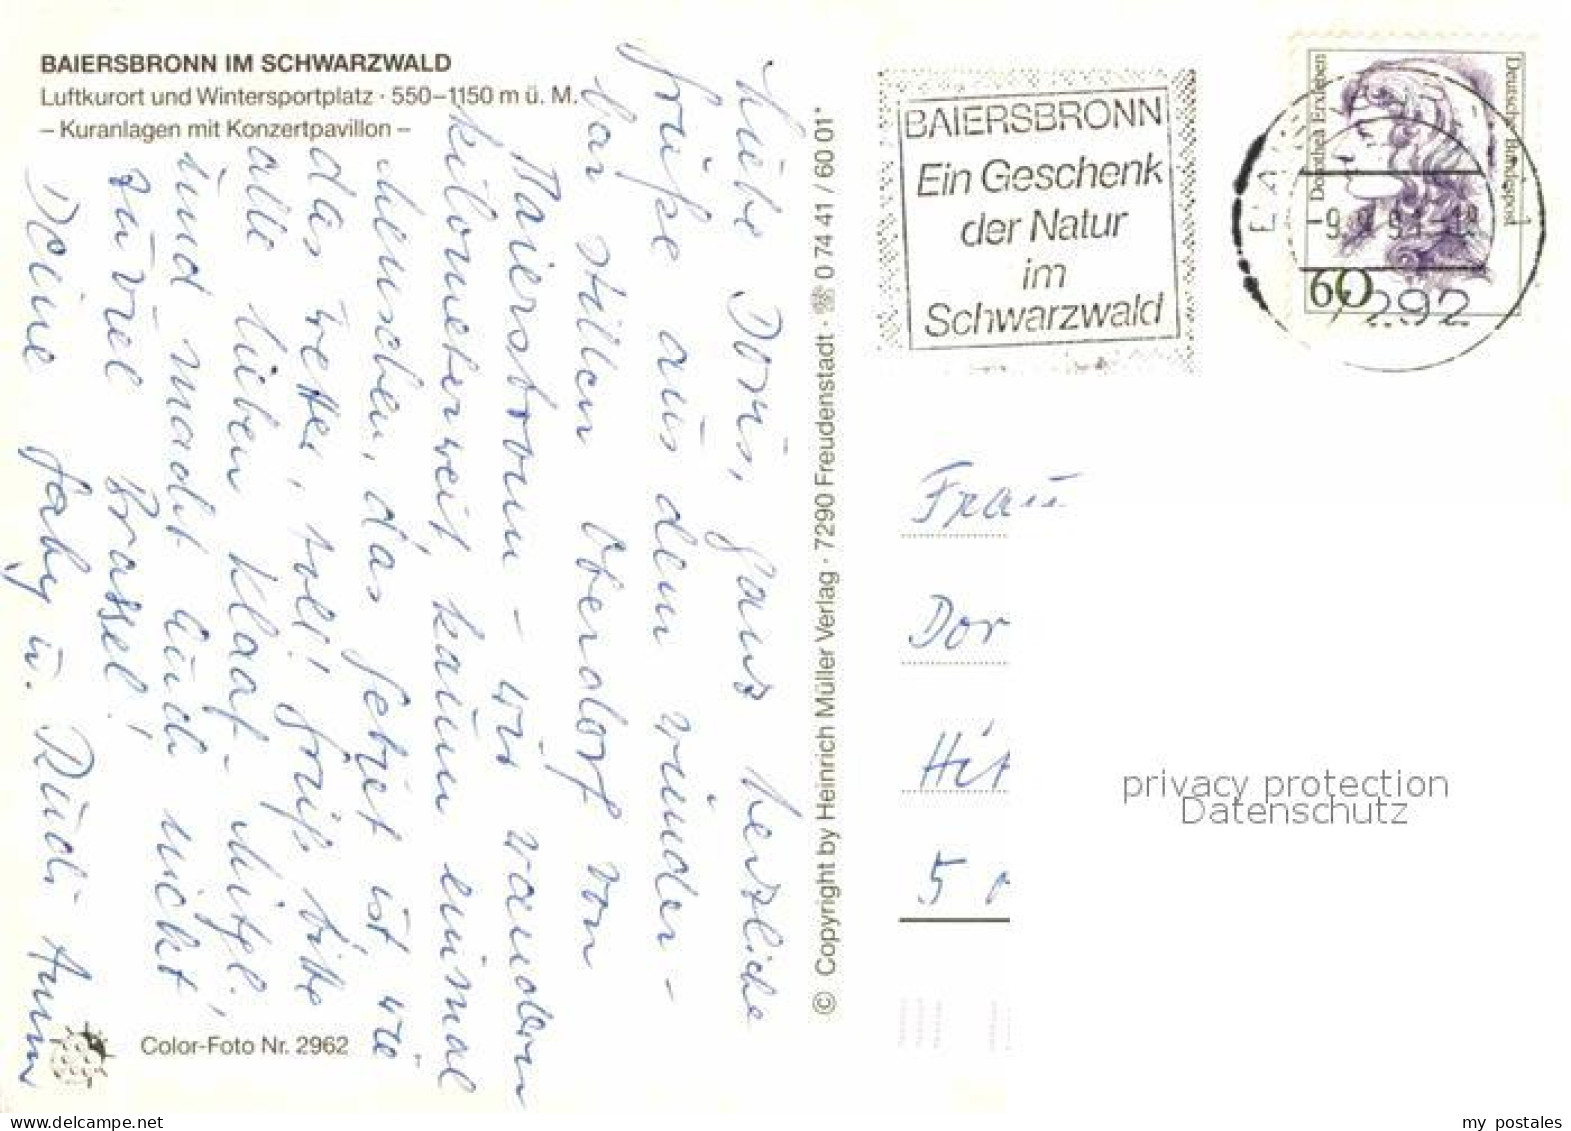 BAIERSBRONN IM SCHWARZWALD
Luftkurort und Wintersportplatz · 550–1150 m ü. M.
– Kuranlagen mit Konzertpavillon –
Liebe Doris, ganz herzliche
Grüße aus dem wunder-
bar stillen Oberdorf von
Baiersbronn - wir wandern
kilometerweit, kaum einmal
Menschen, das Gebiet ist wie
das Wetter, toll! Grüß bitte
alle lieben Klaaf-
und macht Euch nicht
zuviel Brassel!
Deine Gaby u. Rudi
Color-Foto Nr. 2962
© Copyright by Heinrich Müller Verlag · 7290 Freudenstadt · ☏ 0 74 41 / 60 01*
BAIERSBRONN
Ein Geschenk
der Natur
im
Schwarzwald
Dorothea Erxleben
Deutsche Bundespost
60
7292
Frau
Dor
Hit
5
privacy protection
Datenschutz
my postales